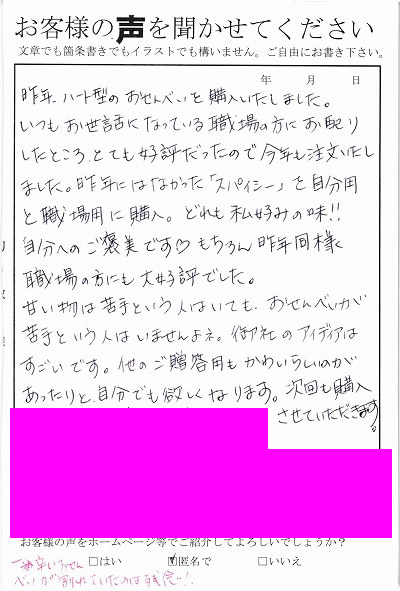 お客様の声を聞かせてください
文章でも箇条書きでもイラストでも構いません。ご自由にお書き下さい。
年 月 日
昨年、ハート型のおせんべいを購入いたしました。
いつもお世話になっている職場の方にお配り
したところ、とても好評だったので今年も注文いたし
ました。昨年にはなかった「スパイシー」を自分用
と職場用に購入。どれも私好みの味!!
自分へのご褒美です♡ もちろん昨年同様
職場の方にも大好評でした。
甘い物は苦手という人はいても、おせんべいが
苦手という人はいませんよネ。御社のアイディアは
すごいです。他のご贈答用もかわいらしいのが
あったりと、自分でも欲しくなります。次回も購入
させていただきます。
お客様の声をホームページ等でご紹介してよろしいでしょうか?
□はい ☑匿名で □いいえ
一番辛いおせん
べいが割れていたのは残念…!